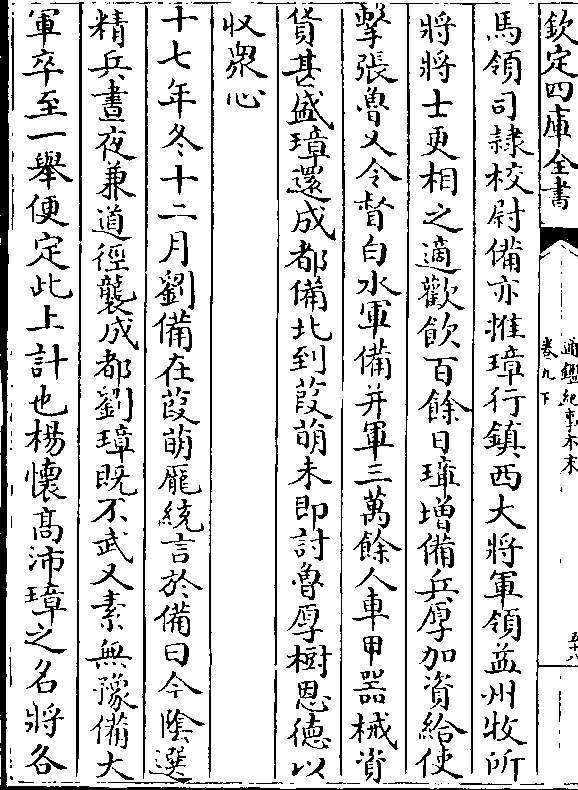 欽定四庫全書
通鑑紀事本末
卷九下
五十八
馬領司隸校尉備亦推璋行鎮西大將軍領益州牧所
將將士更相之適歡飲百餘日璋增備兵厚加資給使
擊張魯又令督白水軍備并軍三萬餘人車甲器械資
貨甚盛璋還成都備北到葭萌未即討魯厚樹恩德以
収衆心
十七年冬十二月劉備在葭萌龐統言於備曰今隂選
精兵晝夜兼道徑襲成都劉璋既不武又素無豫備大
軍卒至一舉便定此上計也楊懷髙沛璋之名將各